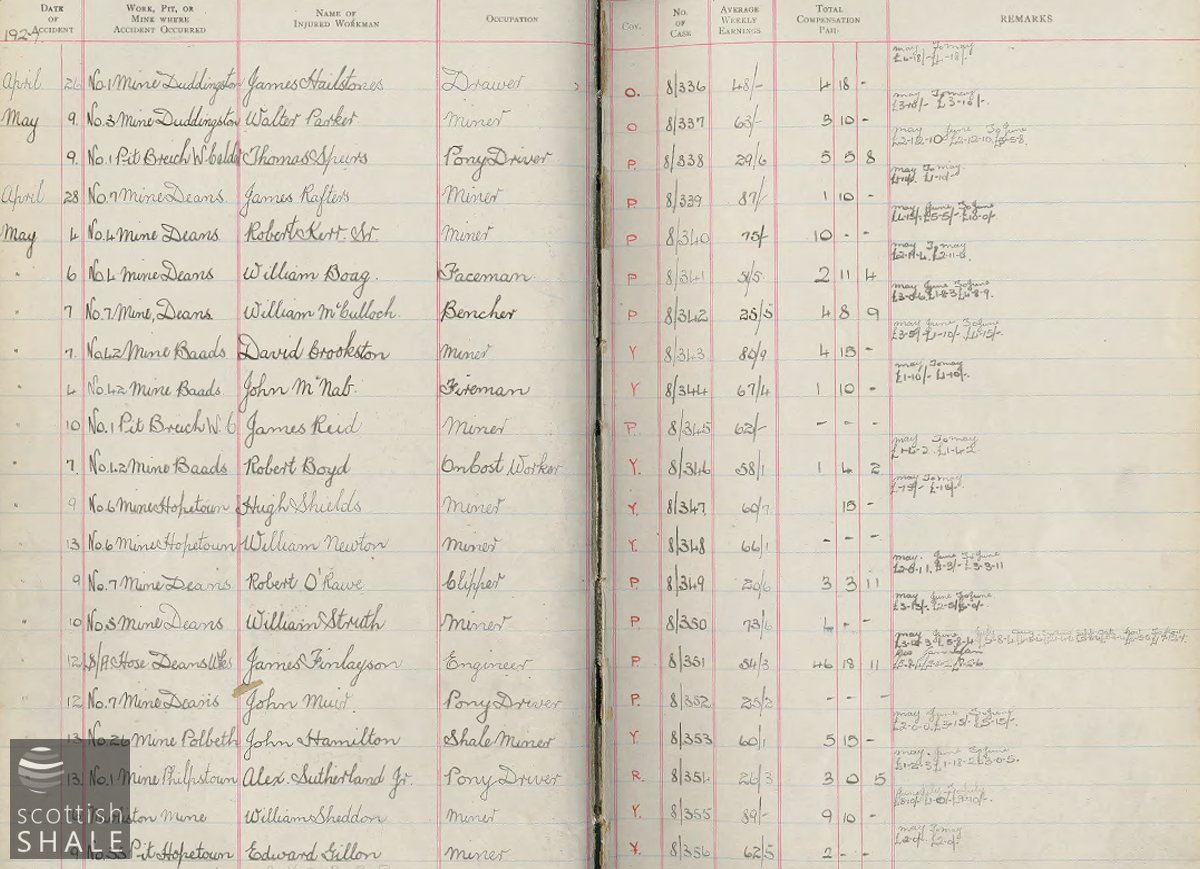 DATE OF ACCIDENT WORK, PIT, OR MINE WHERE ACCIDENT OCCURRED NAME OF INJURED WORKMAN OCCUPATION COY. NO. OF CASE AVERAGE WEEKLY EARNINGS TOTAL COMPENSATION PAID REMARKS
1927.
May To May
£4-18/- £4-18/-
April 26 No.1 Mine Duddingston James Hailstones Drawer O. 8/336 48/- 4 18 -
May To May
£3-10/- £3-10/-
May 9. No.3 Mine Duddingston Walter Parker Miner O 8/337 63/- 3 10 -
May June To June
£2-12-10 £2-12-10 £5-5-8.
9. No.1 Pit Breich W. Calder Thomas Speirs Pony Driver P. 8/338 29/6 5 5 8
May To May
£1-10/- £1-10/-
April 28 No.7 Mine Deans. James Rafters Miner P. 8/339 87/- 1 10 -
May June To June
£4-15/- £5-5/- £10-0/-
May 4 No.4 Mine Deans Robert Kerr. Sr. Miner P 8/340 75/- 10 - -
May To May
£2-11-4 £2-11-4
" 6 No.4 Mine Deans William Boag. Faceman. P 8/341 51/5 2 11 4
May June To June
£3-0-6 £1-8-3 £4-8-9.
" 7 No.7 Mine, Deans William McCulloch. Bencher P 8/342 25/5 4 8 9
May June To June
£3-5/- £1-10/- £4-15/-
" 7. No.42 Mine Baads David Crookston Miner Y 8/343 80/9 4 15 -
May To May
£1-10/- £1-10/-
" 4 No.42 Mine Baads John McNab. Fireman Y 8/344 67/4 1 10 -
" 10 No.1 Pit Breich W.C James Reid Miner P. 8/345 62/- - - -
May To May
£1-4-2 £1-4-2
" 7. No.42 Mine Baads Robert Boyd Oncost Worker Y. 8/346 58/1 1 4 2
May To May
£-15/- £-15/-
" 9 No.6 Mine Hopetown Hugh Shields Miner Y 8/347 60/7 15 -
13 No.6 Mine Hopetown William Newton Miner Y. 8/348 66/1 - - -
May. June To June
£3-3-11
" 9 No.7 Mine Deans Robert O'Rawe Clipper P. 8/349 20/6 3 3 11
May June To June
" 10 No.5 Mine Deans William Struth Miner P. 8/350 73/6 4 - -
May June July
Dec Jan
12 S/A Hose Deans Wks James Finlayson Engineer P. 8/351 54/3 46 18 11
12 No.7 Mine Deans John Muir. Pony Driver P. 8/352 25/2 - - -
May June To June
£2-0-0 £3-15/- £5-15/-
13 No.26 Mine Polbeth John Hamilton Shale Miner Y. 8/353 60/1 5 15 -
May. June To June
£1-2-3 £1-18-2 £3-0-5.
13. No.1 Mine Philpstown Alex. Sutherland Jr. Pony Driver R. 8/354 26/3 3 0 5
Mine William Sheddon Miner Y. 8/355 89/- 9 10 -
May To May
£2-0/- £2-0/-
9 Pit Hopetown Edward Gillon Miner Y. 8/356 62/5 2 - -
scottish
SHALE